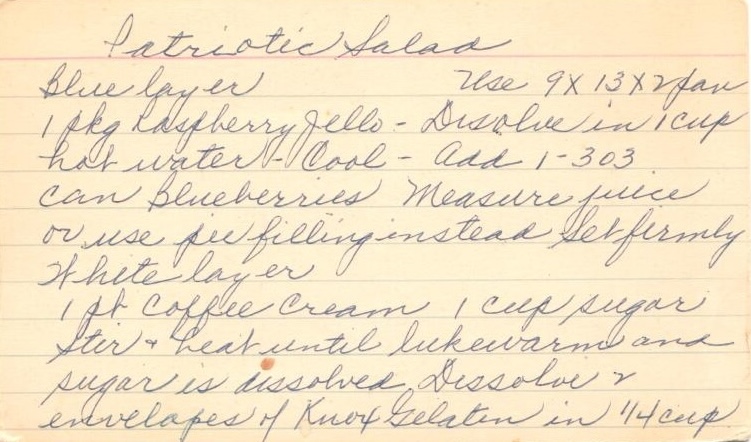 Patriotic Salad
Blue layer Use 9X13X2 pan
1 pkg Raspberry Jello - Disolve in 1 cup
hot water - Cool - Add 1-303
can Blueberries Measure juice
or use pie filling instead Set firmly
White layer
1 pt Coffee Cream 1 cup sugar
Stir & heat until lukewarm and
sugar is dissolved Dissolve 2
envelopes of Knox Gelatin in 1/4 cup